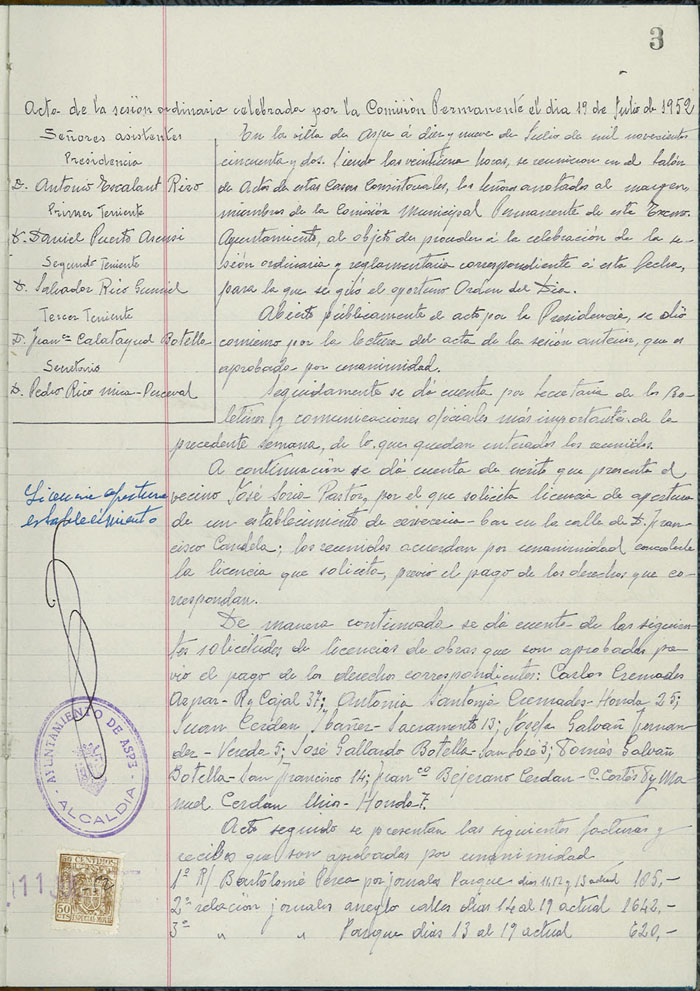 3
Acta de la sesión ordinaria celebrada por la Comisión Permanente el dia 19 de Julio de 1952
Señores asistentes
Presidencia
D. Antonio Escalant Rizo
Primer Teniente
D. Daniel Puerto Asensi
Segundo Teniente
D. Salvador Rico
Tercer Teniente
D. Franco Calatayud Botella
Secretario
D. Pedro Rico Mira-Perceval
En la villa de Aspe á diez y nueve de Julio de mil novecientos
cincuenta y dos. Siendo las veintiuna horas, se reunieron en el Salón
de Actos de estas Casas Consistoriales, los señores anotados al margen
miembros de la Comisión Municipal Permanente de este Excmo.
Ayuntamiento, al objeto de proceder á la celebración de la se-
sión ordinaria y reglamentaria correspondiente á esta fecha,
para la que se giró el oportuno Orden del Dia.
Abierto públicamente el acto por la Presidencia, se dió
comienzo por la lectura del acta de la sesión anterior, que es
aprobada por unanimidad.
Seguidamente se dá cuenta por Secretaría de los Bo-
letines y comunicaciones oficiales más importantes de la
precedente semana, de lo que quedan enterados los reunidos.
Licencia apertura
establecimiento
A continuación se dá cuenta de escrito que presenta el
vecino José Soria Pastor, por el que solicita licencia de apertura
de un establecimiento de cerveceria-bar en la calle de D. Fran-
cisco Candela; los reunidos acuerdan por unanimidad concederle
la licencia que solicita, previo el pago de los derechos que co-
rrespondan.
De manera continuada se dá cuenta de las siguien-
tes solicitudes de licencias de obras que son aprobadas pre-
vio el pago de los derechos correspondientes: Carlos Cremades
Azpar- R y Cajal 37; Antonia Santonja Cremades-Honda 25;
Juan Cerdan Ibañez- Sacramento 13; Josefa Galvañ Fernan-
dez- Vereda 5; José Gallardo Botella- San José 3; Tomás Galvañ
Botella- San Francisco 14; Franco Bejerano Cerdan- C. Cortés 8 y Ma-
nuel Cerdan - Honda 7.
Acto seguido se presentan las siguientes facturas y
recibos que son aprobadas por unanimidad
1º R/ Bartolomé Perea por jornales Parque dias 11, 12 y 13 actual 105,-
2º relación jornales arreglo calles dias 14 al 19 actual 1642,-
3º " " Parque dias 13 al 19 actual 620,-
AYUNTAMIENTO DE ASPE
ALCALDIA
50 CENTIMOS
50 CTS
11 JUL